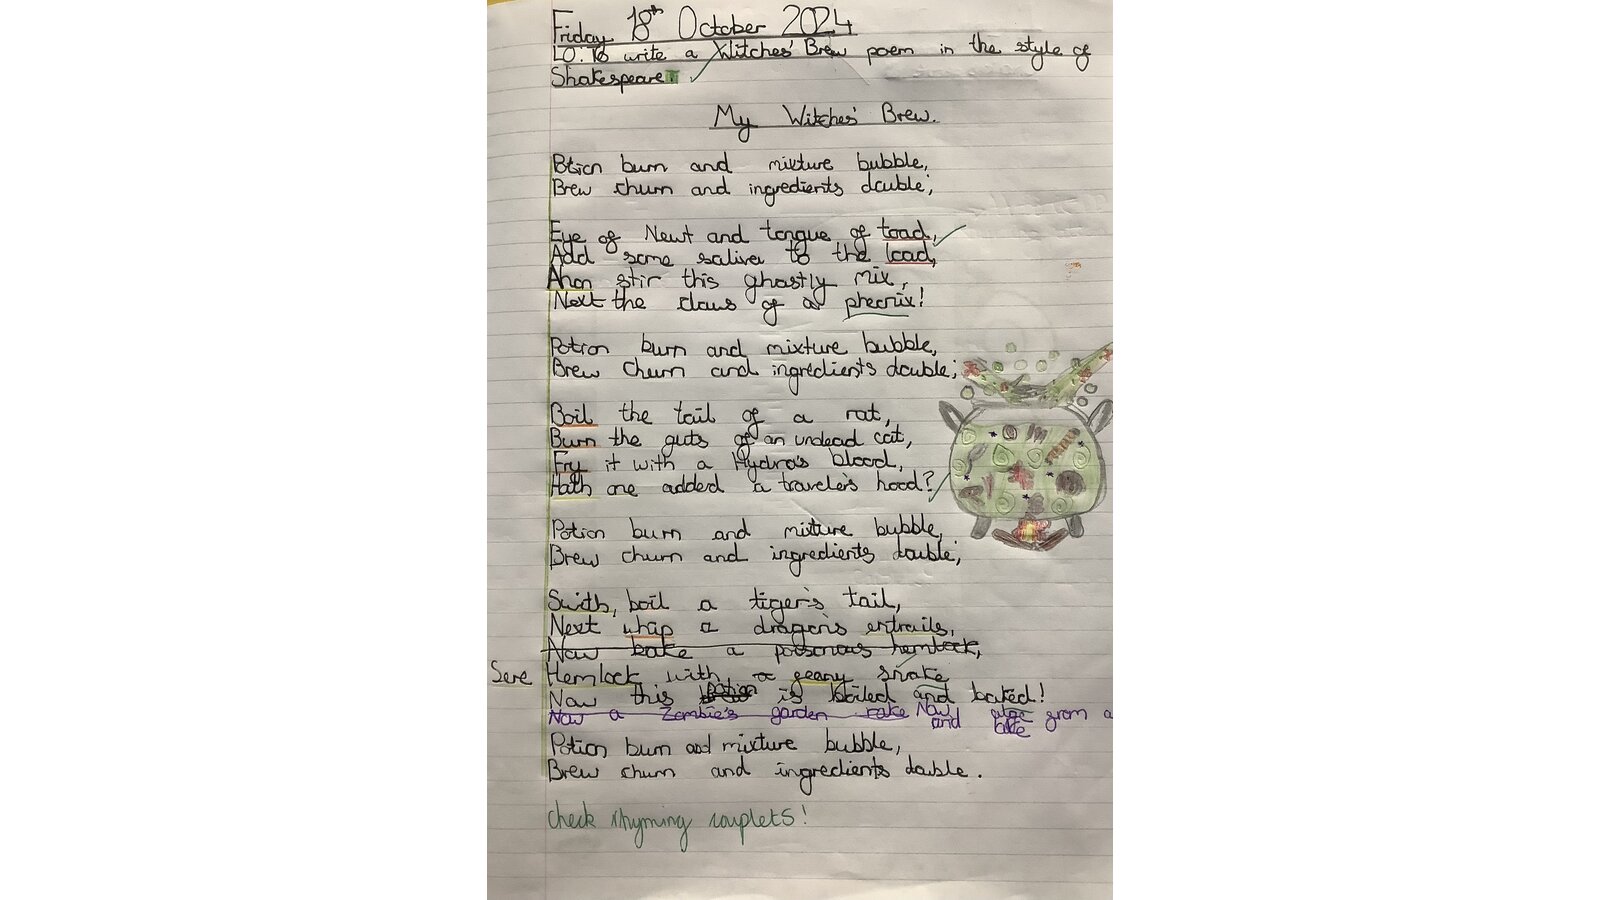 Friday 18th October 2024
LO. To write a Witches' Brew poem in the style of
Shakespeare.
My Witches' Brew.
Potion burn and mixture bubble,
Brew churn and ingredients double;
Eye of Newt and tongue of toad,
Add some saliva to the load,
Anon stir this ghastly mix,
Next the claws of a pheonix!
Potion burn and mixture bubble,
Brew churn and ingredients double;
Boil the tail of a rat,
Burn the guts of an undead cat,
Fry it with a Hydra's blood,
Hath one added a traveler's hood?
Potion burn and mixture bubble,
Brew churn and ingredients double;
Swith, boil a tiger's tail,
Next whip a dragon's entrails,
Now bake a poisonous hemlock,
Sere Hemlock with a geany snake
Now this potion is boiled and baked!
Now a Zombie's garden rake Now and from a
Potion burn and mixture bubble,
Brew churn and ingredients double.
check rhyming couplets!